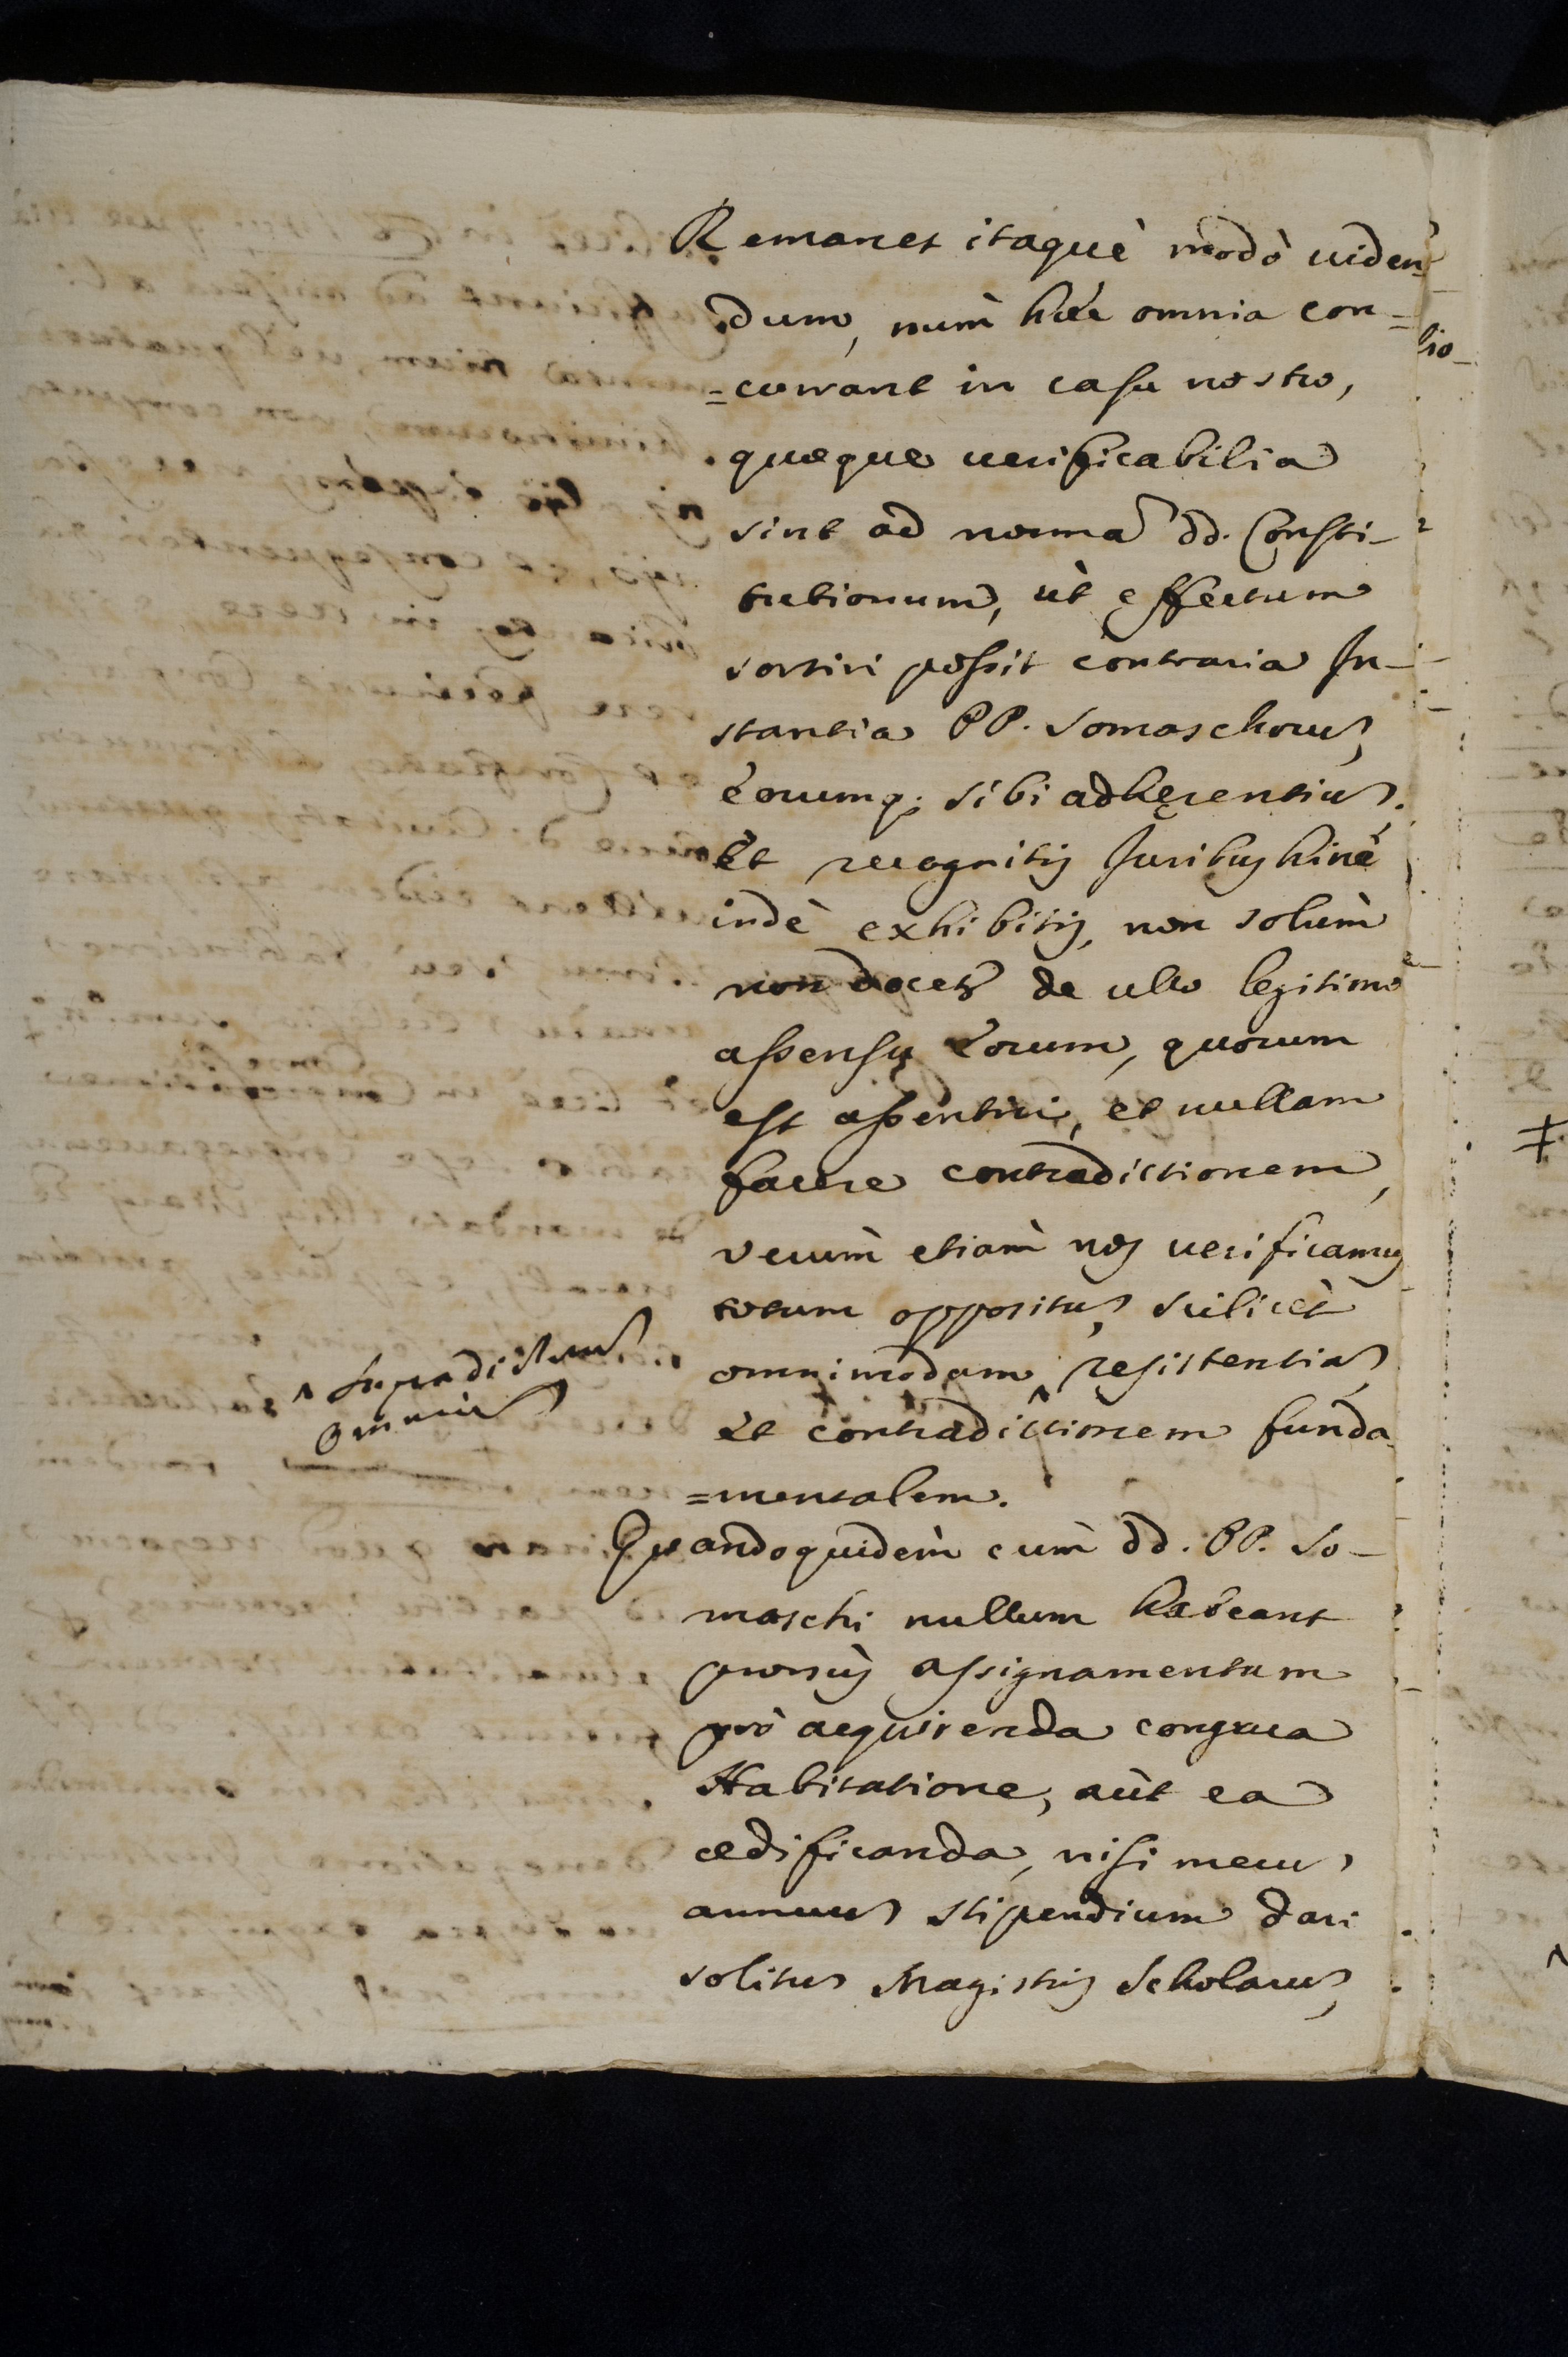 Remanet itaquè modò uiden=
dum, num̀ hæc omnia con=
=currant in casu nostro,
quæque uerificabilia
sint ad normã dd. Consti-
tutionum, ùt effectum
sortiri possit contraria In-
stantia PP. Somaschorũ,
eorumq; sibi adhęrentiũ.
Et recognitis Juribus hinc
indè exhibitis, non solùm
non docetr de ullo legitimo
assensu eorum, quorum
est assentiri, et nullam
facere contradictionem,
verùm etiàm nos uerificamus
totum oppositũ, scilicèt
omnimodam ^ resistentiã
^ supradictorũ
omniũ
et contradictionem funda
=mentalem.
Quandoquidèm cùm dd. PP. So-
maschi nullum habeant
prorsùs assignamentum
prò acquirenda congrua
Habitatione, aùt ea
ædificanda, nisi merũ
annuũ stipendium dari
solitũ Magistris Scholarũ,